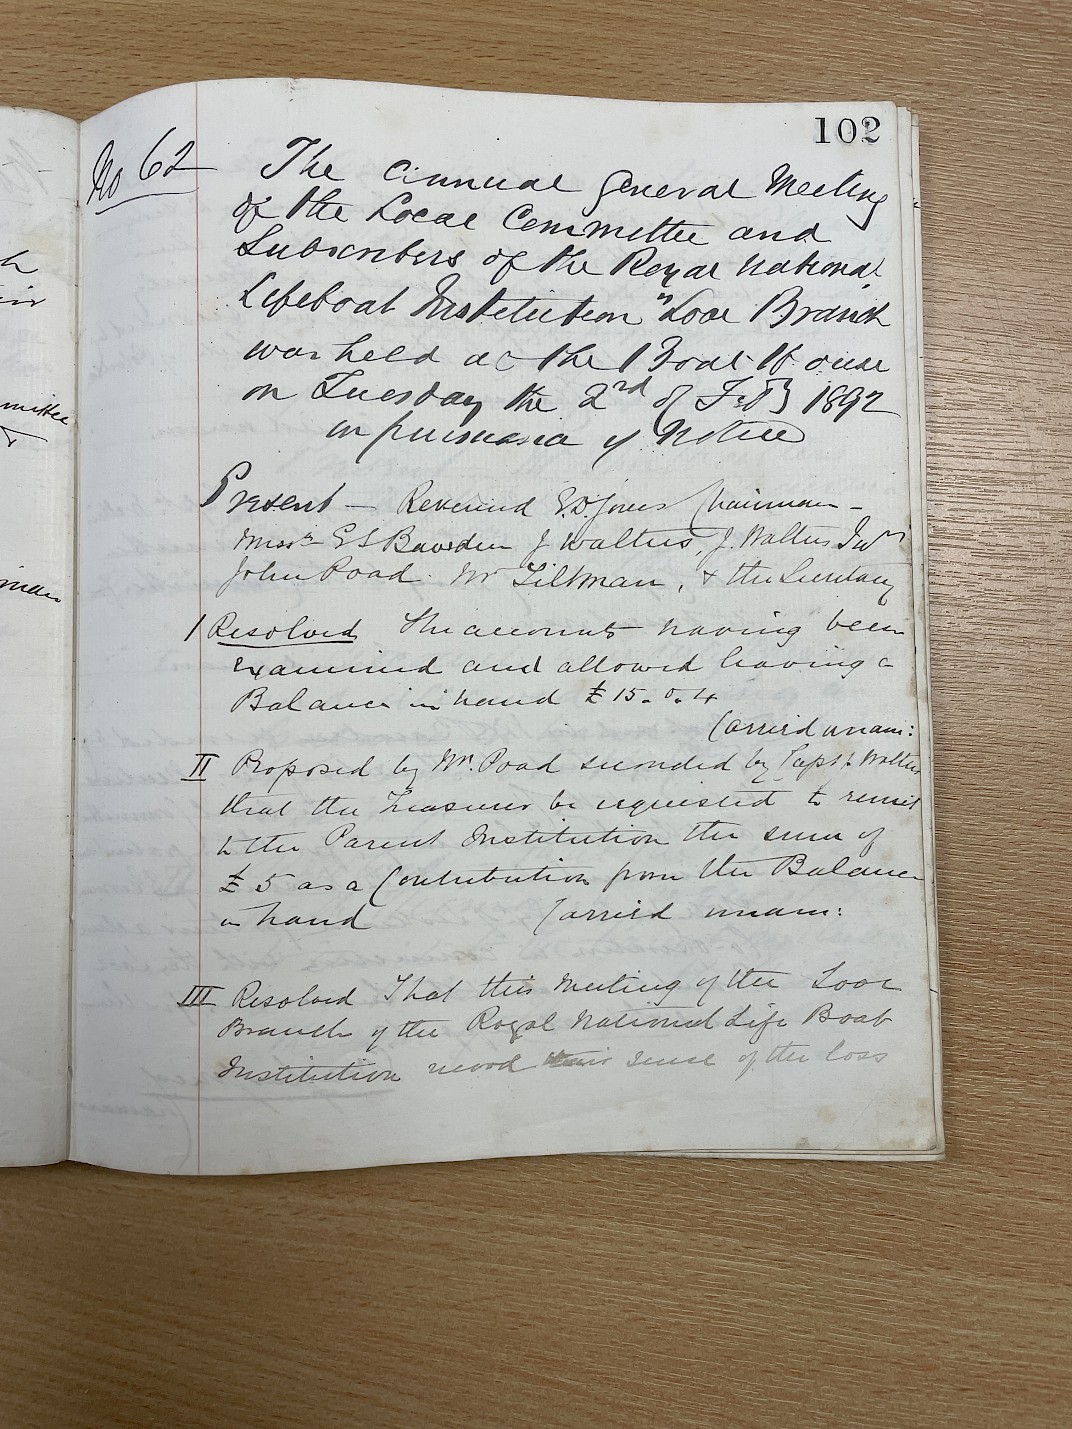 102
No 62
The annual General Meeting
of the Local Committee and
Subscribers of the Royal National
Lifeboat Institution "Looe Branch
was held at the Boat House
on Tuesday the 2nd of Feby 1892
in pursuance of Notice
Present — Reverend E.D. Jones Chairman –
Messrs E S Bawden J Walters, J. Walters Junr
John Poad. Mr Tiltman, & the Secretary
I Resolved The accounts having been
examined and allowed leaving a
Balance in hand £15.0.4
Carried unam:
II Proposed by Mr. Poad seconded by Capt J. Walters
that the Treasurer be requested to remit
to the Parent Institution the sum of
£5 as a Contribution from the Balance
in hand Carried unam:
III Resolved That this Meeting of the Looe
Branch of the Royal National Life Boat
Institution record their sense of the loss